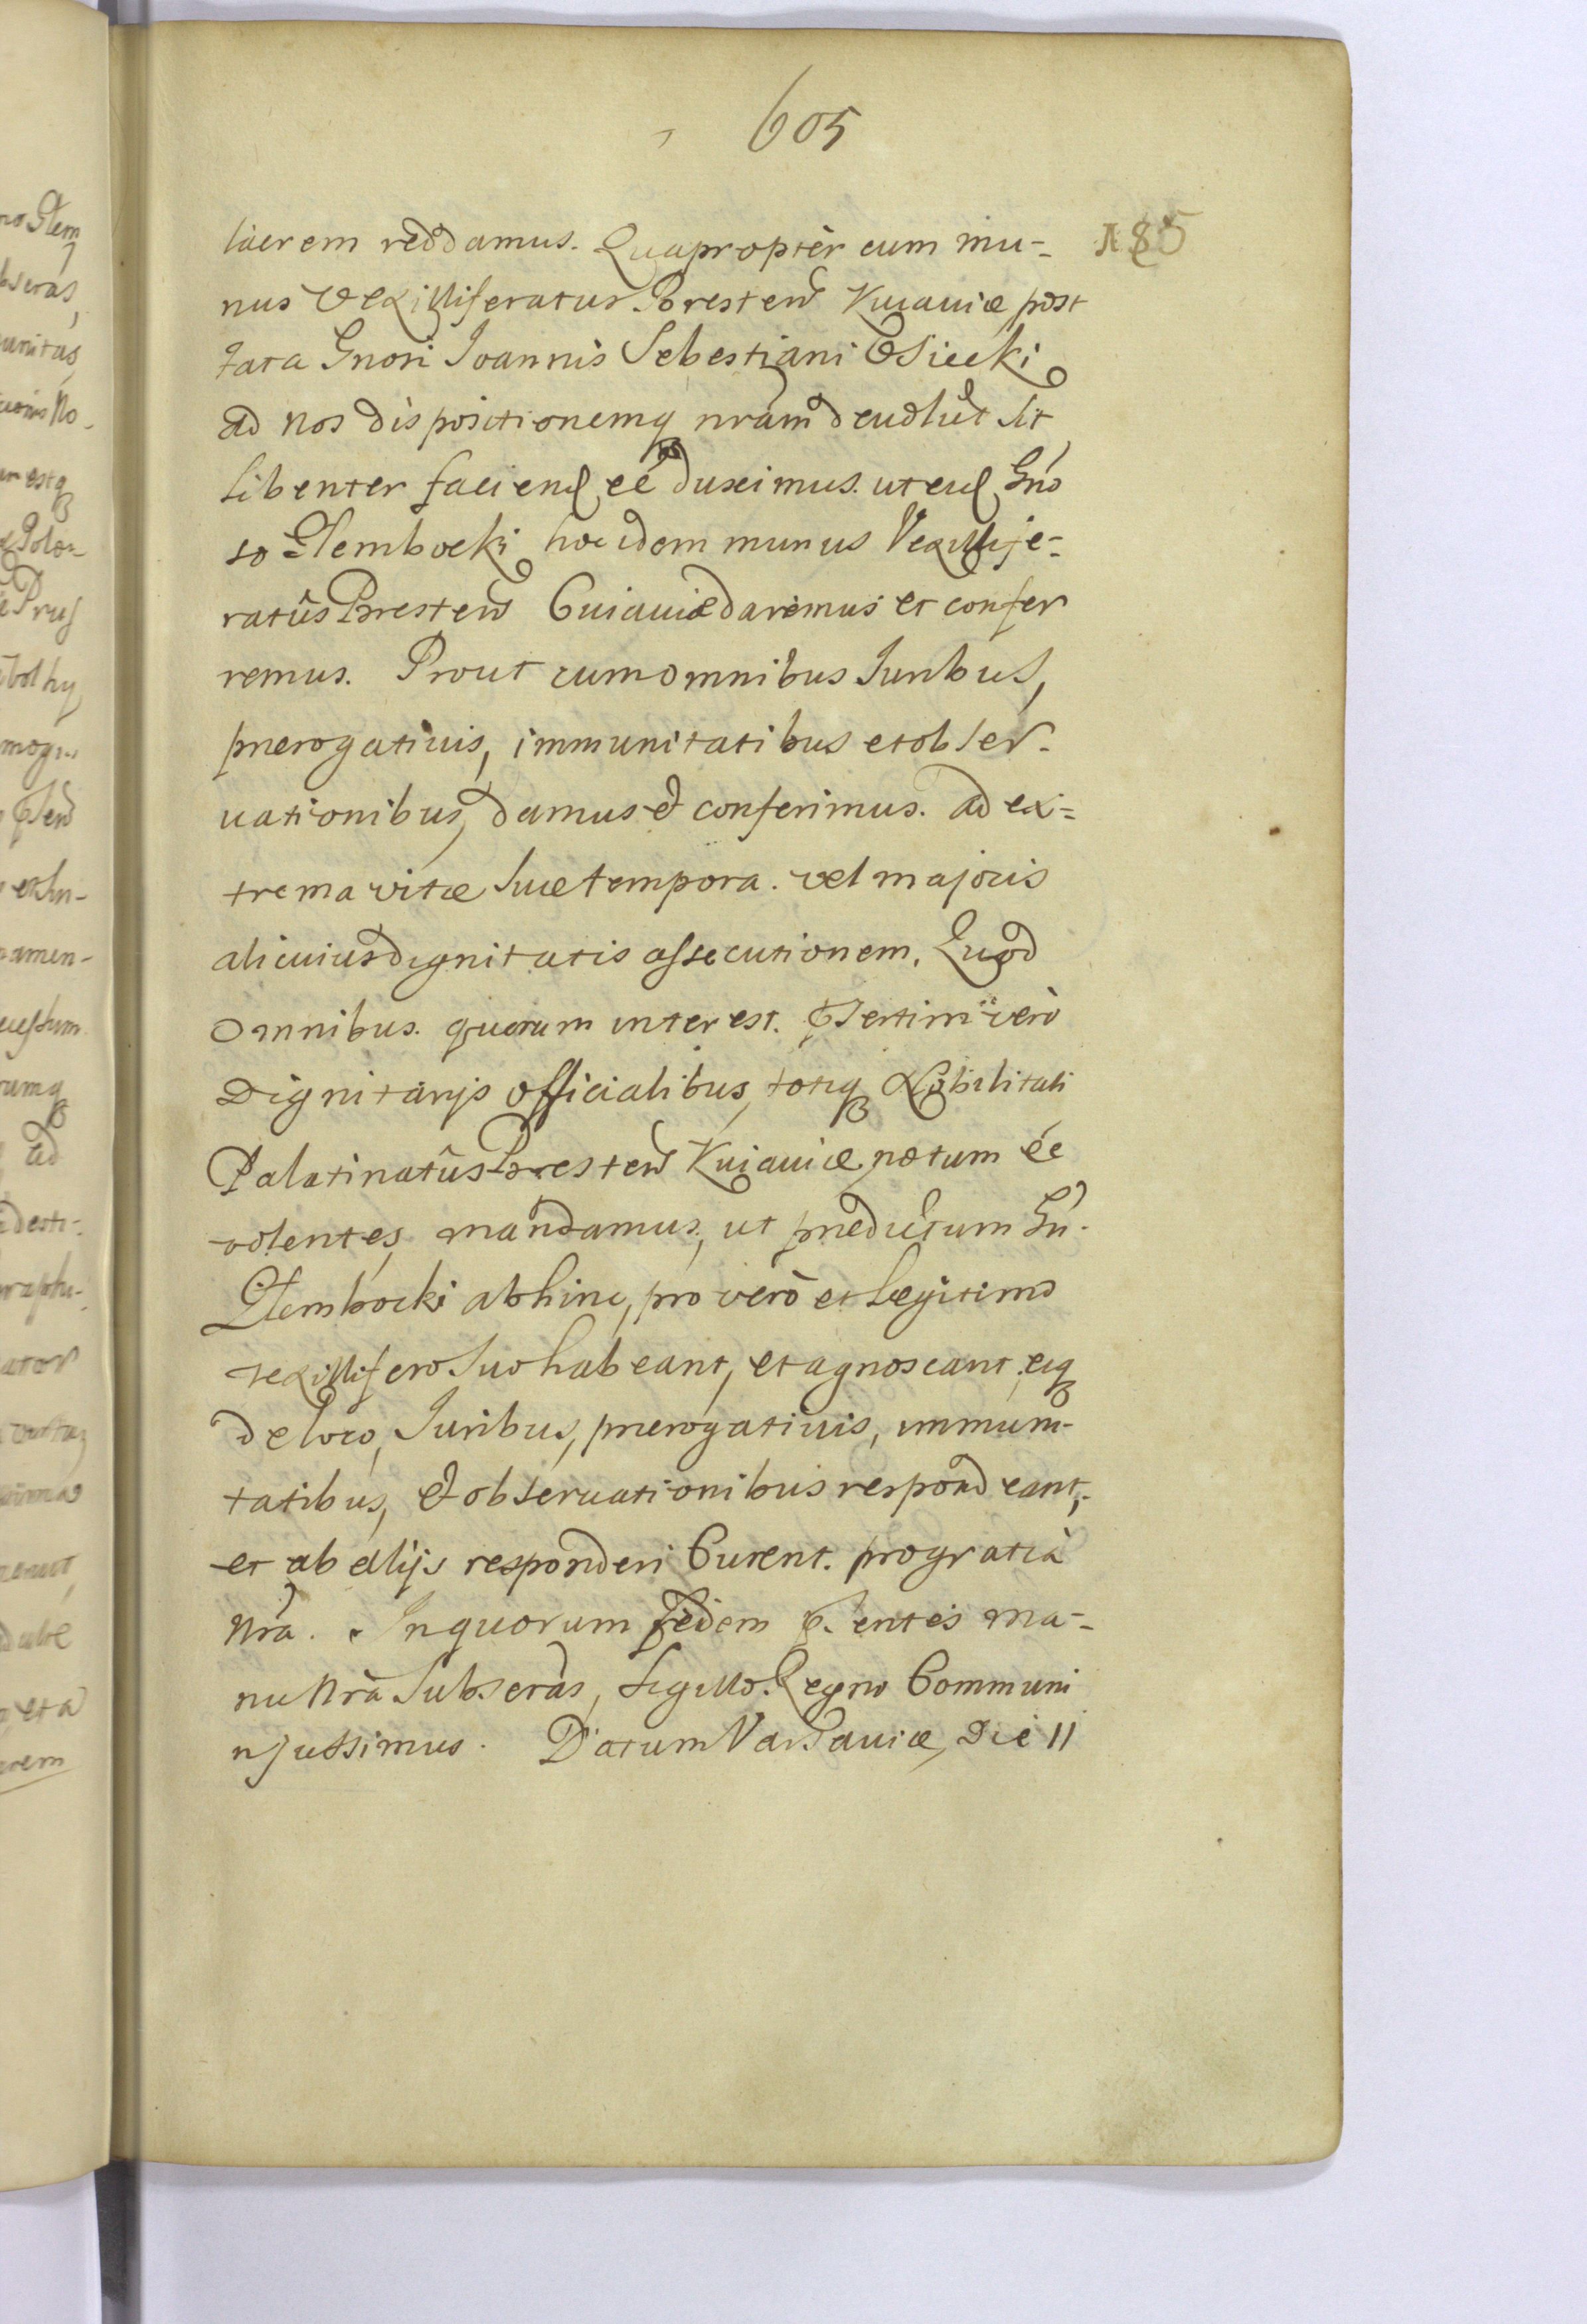 605
185
liorem reddamus. Quapropter cum mu-
nus Vexilliferatus Bresten Kuiauiæ post
fata Gnosi Joannis Sebestiani Osiecki
ad nos dispositionemq nram deuolut sit
libenter faciend eé duximus. ut eid Gno
so Glembocki hoc idem munus Vexillife-
ratûs Bresten Cuiauiæ daremus et confer
remus. Prout cum omnibus Juribus,
prærogatiuis, immunitatibus et obser-
uationibus, damus et conferimus. ad ex-
trema vitæ suæ tempora. vel majoris
alicuius dignitatis assecutionem. Quod
Omnibus. quorum interest. psertim verò
Dignitarijs officialibus, totiq Nobilitati
Palatinatûs Bresten Kuiauiæ, notum eé
volentes, mandamus, ut prædictum Gn.
Glembocki abhinc, pro verò et legitimo
vexillifero suo habeant, et agnoscant, eiq
de loco, Juribus, prærogatiuis, immuni-
tatibus, et obseruationibus respondeant,
et ab alijs responderi Curent. pro gratia
nrà. In quorum fidem p. entes ma-
nu nrà Subscras, sigillo Regno Communi
rj jussimus. Datum Varsauiæ, Die 11